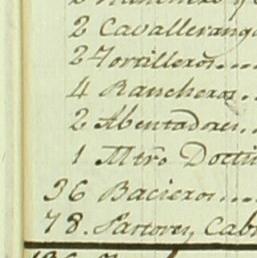 2
2 Cavallerang
2 Tortilleros....
4 Rancheros..
2 Abentadores..
1 Mtro Doctri
36 Bacieros....
78. Pastores, Cab